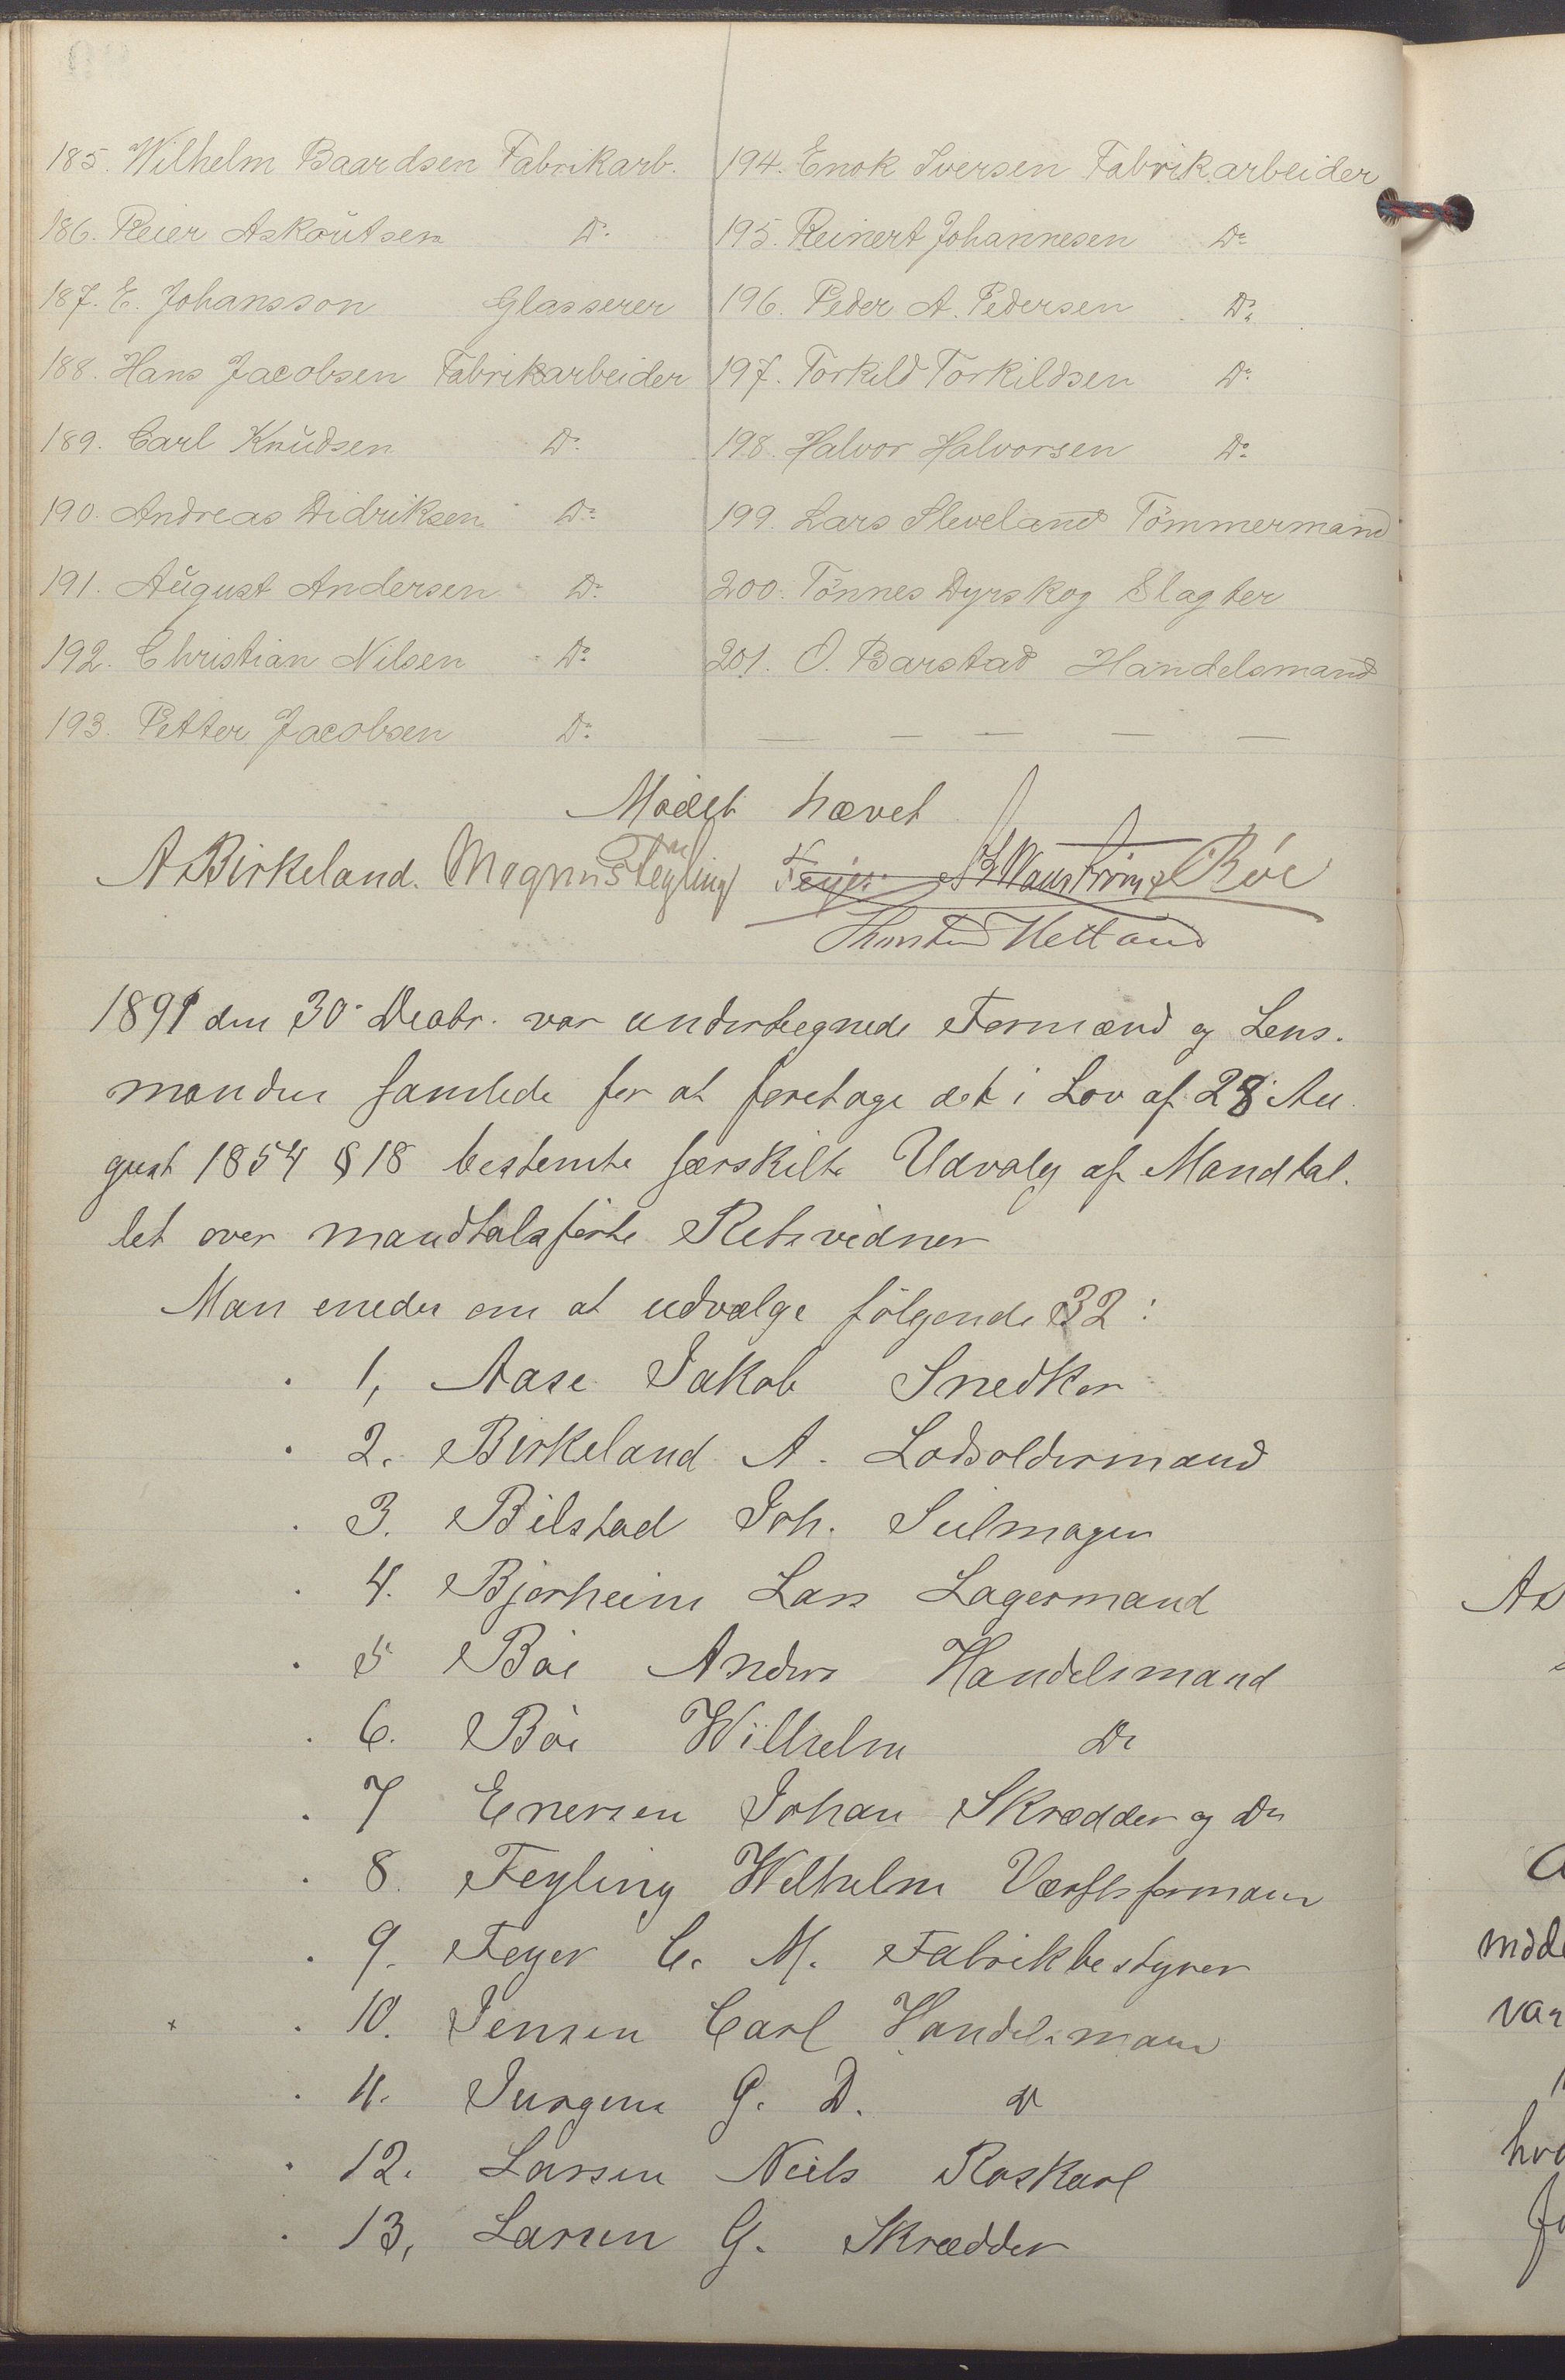 185. Wilhelm Baardsen Fabrikarb.
186. Reier Askoutsen Do
187. E. Johansson Glasserer
188. Hans Jacobsen Fabrikarbeider
189. Carl Knudsen Do
190. Andreas Didriksen Do
191. August Andersen Do
192. Christian Nilsen Do
193. Petter Jacobsen Do
194. Enok Iversen Fabrikarbeider
195. Reinert Johannesen Do
196. Peder A. Pedersen Do
197. Torkild Torkildsen Do
198. Halvor Halvorsen Do
199. Lars Sleveland Tömmermand
200. Tönnes Dyrskog Slagter
201. O. Barstad Handelsmand
Mödet hævet
A. Birkeland. Magnus Feyling Feyer Böe
Thorsten Hetland
1891 den 30. Decbr. var undertegnede Formænd og Lens-
manden samlede for at foretage det i Lov af 28. Au
gust 1854 § 18 bestemte særskilte Udvalg af Mandtal-
let over mandtalsførte Retsvidner
Man enedes om at udvælge følgende 32:
1, Aase Jakob Snedker
2. Birkeland A. Lodsoldermand
3. Bilstad Joh. Seilmager
4. Bjerheim Lars Lagermand
5 Böe Anders Handelsmand
6. Böe Wilhelm Do
7 Enersen Johan Skrædder og Do
8. Feyling Wilhelm Værftsformann
9. Feyer C. M. Fabrikbestyrer
10. Jensen Carl Handelsmann
11. Jurgens G. D. Do
12. Larsen Niels Roskarl
13, Larsen G. Skrædder